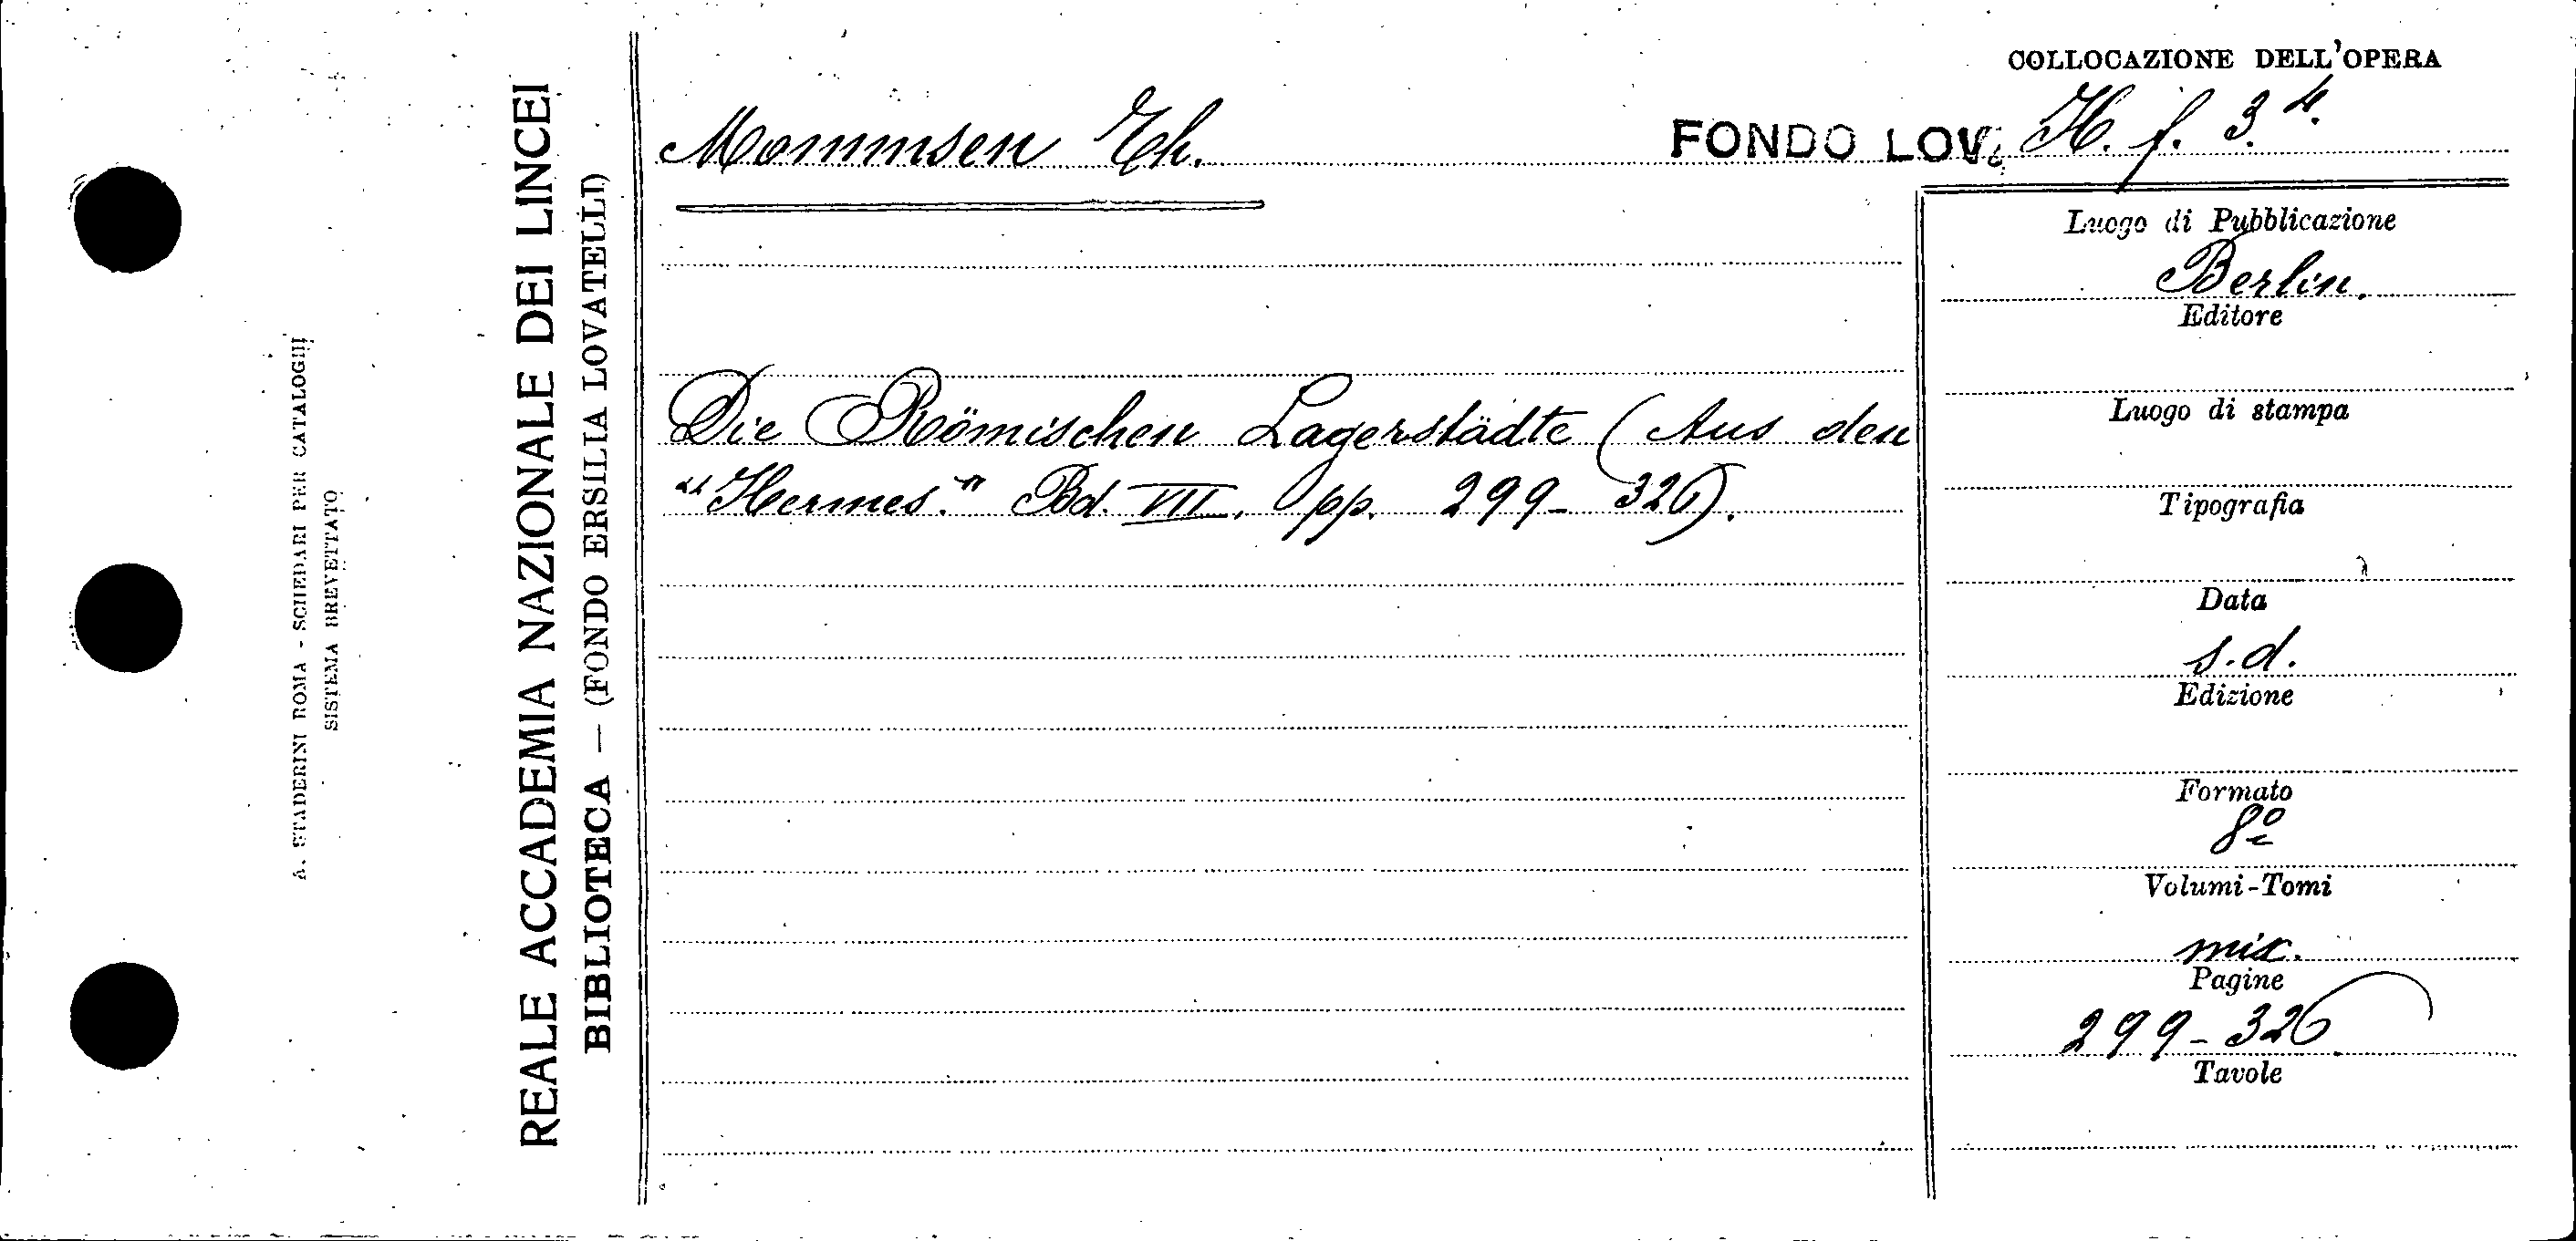 COLLOCAZIONE DELL'OPERA
Mommsen Th.
FONDO LOV. H. f. 3.4.
Die Römischen Lagerstädte (Aus den
"Hermes." Bd. VII. pp. 299-326).
Luogo di Pubblicazione
Berlin.
Editore
Luogo di stampa
Tipografia
Data
s.d.
Edizione
Formato
8º
Volumi-Tomi
misc.
Pagine
299-326
Tavole
REALE ACCADEMIA NAZIONALE DEI LINCEI
BIBLIOTECA — (FONDO ERSILIA LOVATELLI)
A. STADERINI ROMA - SCHEDARI PER CATALOGHI
SISTEMA BREVETTATO